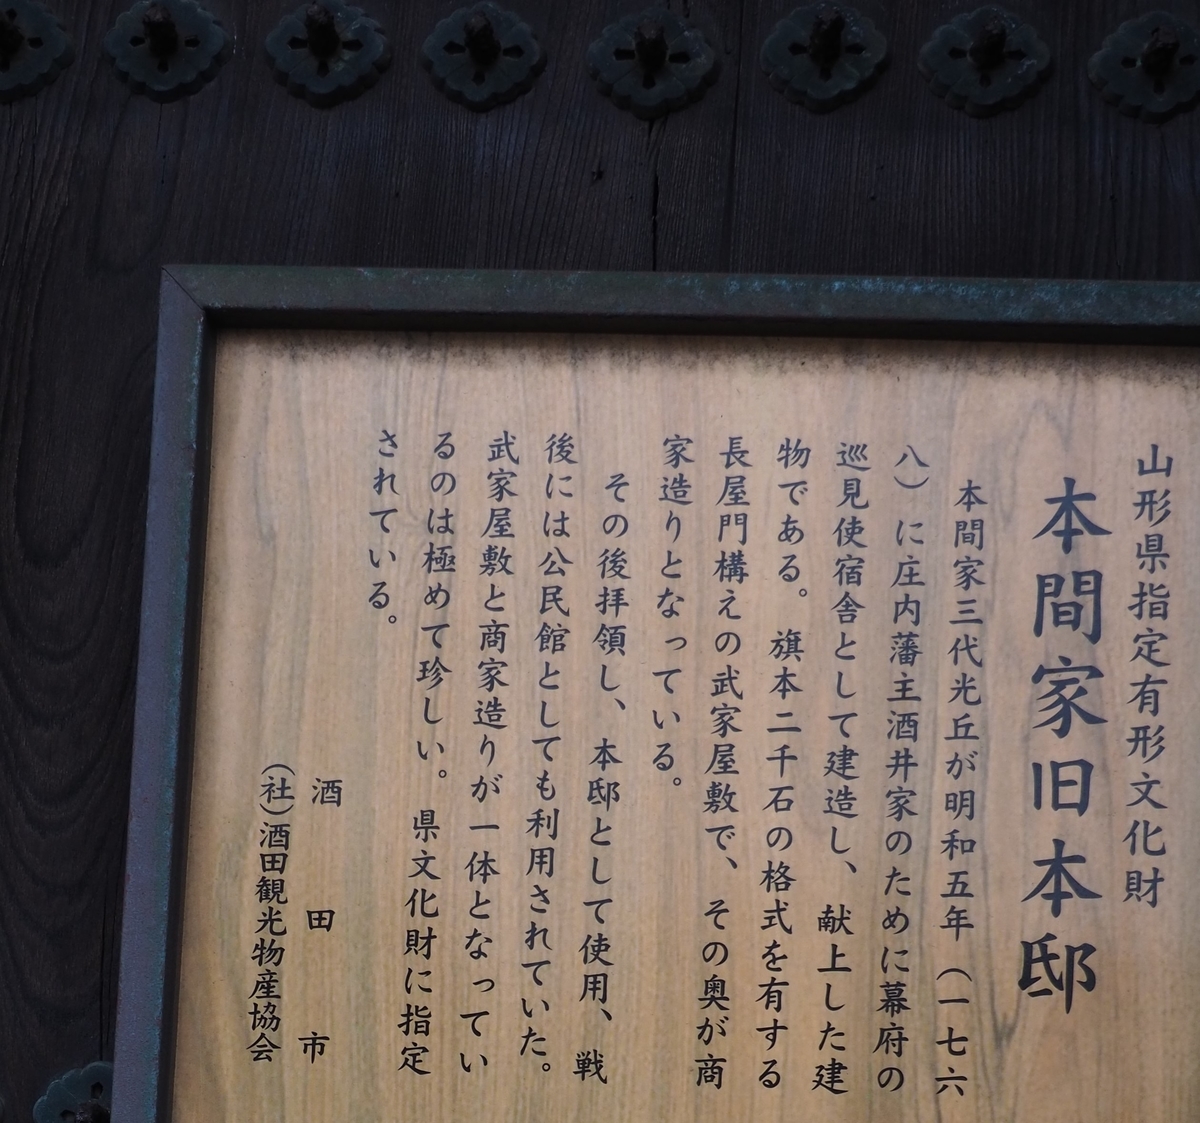 山形県指定有形文化財
本間家旧本邸
本間家三代光丘が明和五年（一七六
八）に庄内藩主酒井家のために幕府の
巡見使宿舎として建造し、献上した建
物である。旗本二千石の格式を有する
長屋門構えの武家屋敷で、その奥が商
家造りとなっている。
その後拝領し、本邸として使用、戦
後には公民館としても利用されていた。
武家屋敷と商家造りが一体となってい
るのは極めて珍しい。県文化財に指定
されている。
酒田市
（社）酒田観光物産協会